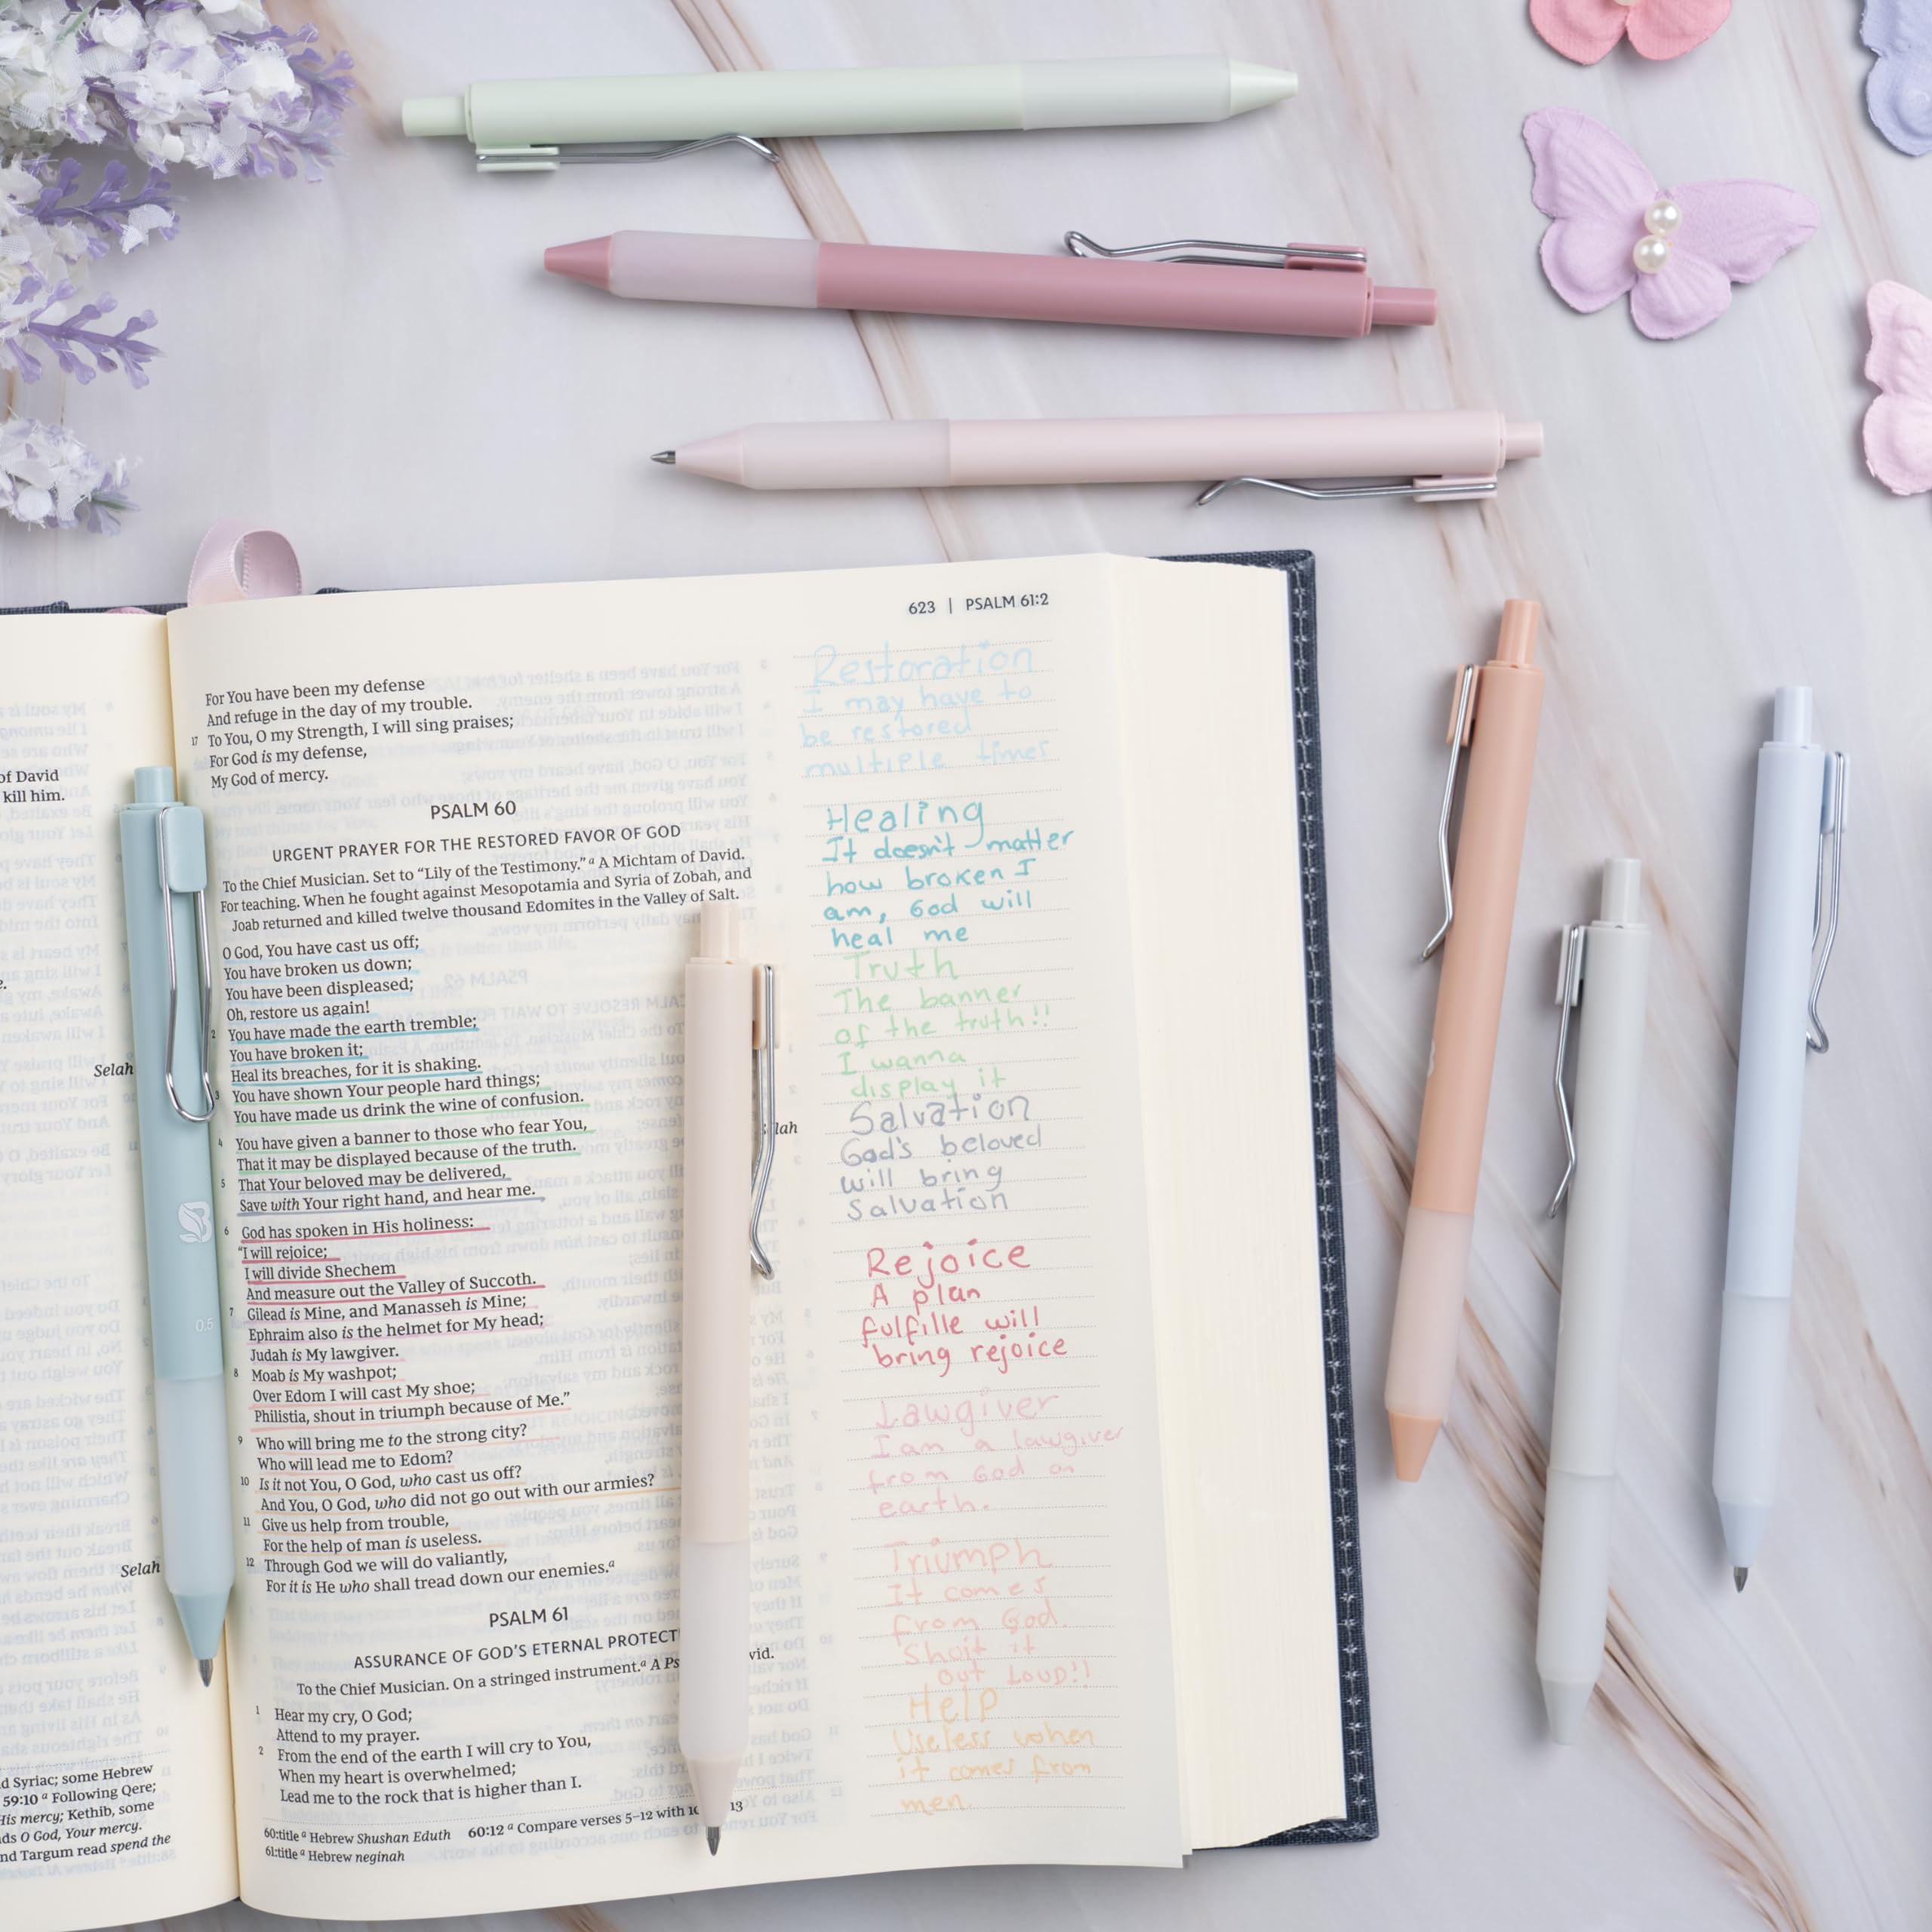 of David
kill him.
Selah
Selah
d Syriac; some Hebrew
59:10 a Following Qere;
His mercy; Kethib, some
ds O God, Your mercy.
nd Targum read spend the
623 | PSALM 61:2
For You have been my defense
And refuge in the day of my trouble.
17 To You, O my Strength, I will sing praises;
For God is my defense,
My God of mercy.
PSALM 60
URGENT PRAYER FOR THE RESTORED FAVOR OF GOD
To the Chief Musician. Set to “Lily of the Testimony.” a A Michtam of David.
For teaching. When he fought against Mesopotamia and Syria of Zobah, and
Joab returned and killed twelve thousand Edomites in the Valley of Salt.
O God, You have cast us off;
You have broken us down;
You have been displeased;
Oh, restore us again!
2 You have made the earth tremble;
You have broken it;
Heal its breaches, for it is shaking.
3 You have shown Your people hard things;
You have made us drink the wine of confusion.
lah
4 You have given a banner to those who fear You,
That it may be displayed because of the truth.
5 That Your beloved may be delivered,
Save with Your right hand, and hear me.
6 God has spoken in His holiness:
“I will rejoice;
I will divide Shechem
And measure out the Valley of Succoth.
7 Gilead is Mine, and Manasseh is Mine;
Ephraim also is the helmet for My head;
Judah is My lawgiver.
8 Moab is My washpot;
Over Edom I will cast My shoe;
Philistia, shout in triumph because of Me.”
9 Who will bring me to the strong city?
Who will lead me to Edom?
10 Is it not You, O God, who cast us off?
And You, O God, who did not go out with our armies?
11 Give us help from trouble,
For the help of man is useless.
12 Through God we will do valiantly,
For it is He who shall tread down our enemies.a
PSALM 61
ASSURANCE OF GOD’S ETERNAL PROTECT
To the Chief Musician. On a stringed instrument.a A Ps vid.
1 Hear my cry, O God;
Attend to my prayer.
2 From the end of the earth I will cry to You,
When my heart is overwhelmed;
Lead me to the rock that is higher than I.
60:title a Hebrew Shushan Eduth 60:12 a Compare verses 5–12 with 10 13
61:title a Hebrew neginah
Restoration
I may have to
be restored
multiple times
Healing
It doesn't matter
how broken I
am, God will
heal me
Truth
The banner
of the truth!!
I wanna
display it
Salvation
God's beloved
will bring
Salvation
Rejoice
A plan
fulfille will
bring rejoice
Lawgiver
I am a lawgiver
from God on
earth.
Triumph
It comes
from God.
Shoit it
out Loup!!
Help
Useless when
it comes from
men.
0.5